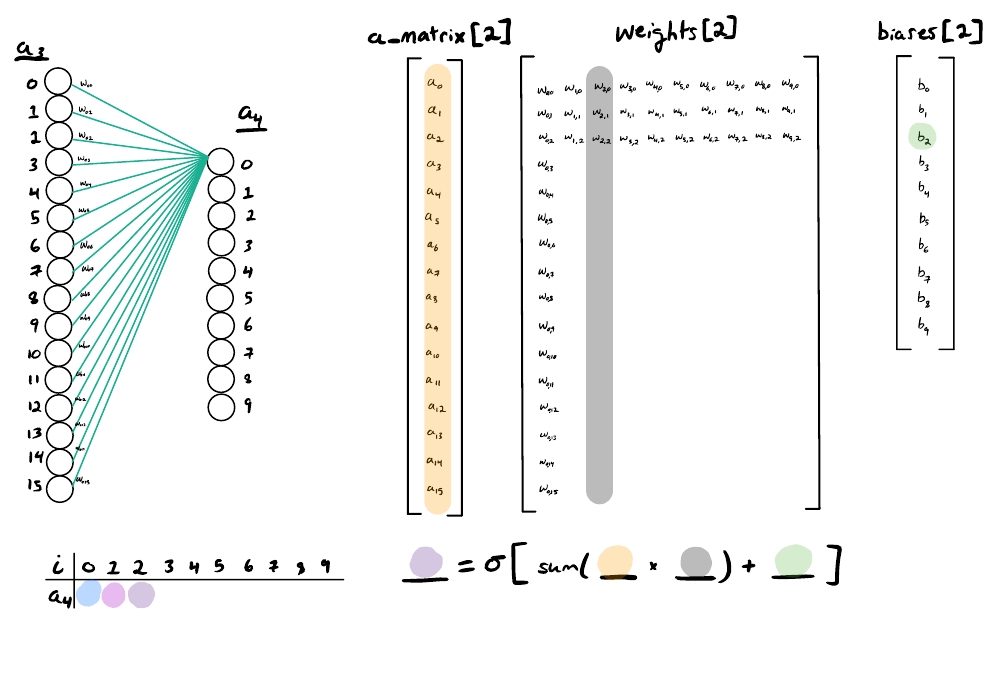 a₃
0
1
1
3
4
5
6
7
8
9
10
11
12
13
14
15
w₀₀
w₀₂
w₀₃
a₄
0
1
2
3
4
5
6
7
8
9
a_matrix[2]
a₀
a₁
a₂
a₃
a₄
a₅
a₆
a₇
a₈
a₉
a₁₀
a₁₁
a₁₂
a₁₃
a₁₄
a₁₅
weights[2]
w₀,₀ w₁,₀ w₂,₀ w₃,₀ w₄,₀ w₅,₀ w₆,₀ w₇,₀ w₈,₀ w₉,₀
w₀,₁ w₁,₁ w₂,₁ w₃,₁ w₄,₁ w₅,₁ w₆,₁ w₇,₁ w₈,₁ w₉,₁
w₀,₂ w₁,₂ w₂,₂ w₃,₂ w₄,₂ w₅,₂ w₆,₂ w₇,₂ w₈,₂ w₉,₂
w₀,₃
w₀,₄
w₀,₅
w₀,₆
w₀,₇
w₀,₈
w₀,₉
w₀,₁₀
w₀,₁₁
w₀,₁₂
w₀,₁₃
w₀,₁₄
w₀,₁₅
biases[2]
b₀
b₁
b₂
b₃
b₄
b₅
b₆
b₇
b₈
b₉
i 0 1 2 3 4 5 6 7 8 9
a₄
= σ[ sum( * ) + ]